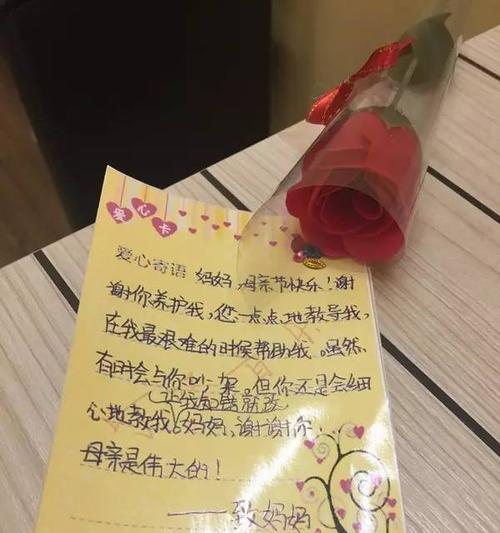 爱心卡
爱心寄语 妈妈,母亲节快乐!谢
谢你养护我,您一点点地教导我,
在我最艰难的时候帮助我。虽然
有时会与你吵架。但你还是会细
让我知错就改
心地教我。妈妈,谢谢你…
母亲是伟大的!
——致妈妈